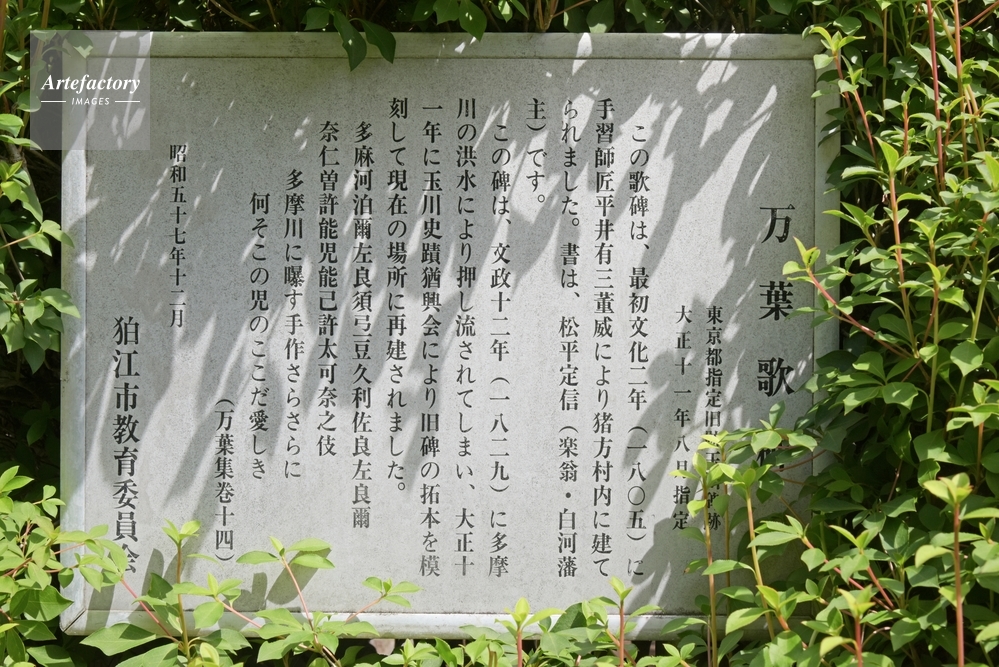 Artefactory
IMAGES
万葉歌
東京都指定旧
大正十一年八月指定
この歌碑は、最初文化二年（一八〇五）に
手習師匠平井有三董威により猪方村内に建て
られました。書は、松平定信（楽翁・白河藩
主）です。
この碑は、文政十二年（一八二九）に多摩
川の洪水により押し流されてしまい、大正十
一年に玉川史蹟猶興会により旧碑の拓本を模
刻して現在の場所に再建されました。
多麻河泊爾左良須弖豆久利佐良左良爾
奈仁曽許能児能己許太可奈之伎
多摩川に曝す手作さらさらに
何そこの児のここだ愛しき
（万葉集巻十四）
昭和五十七年十二月
狛江市教育委員会